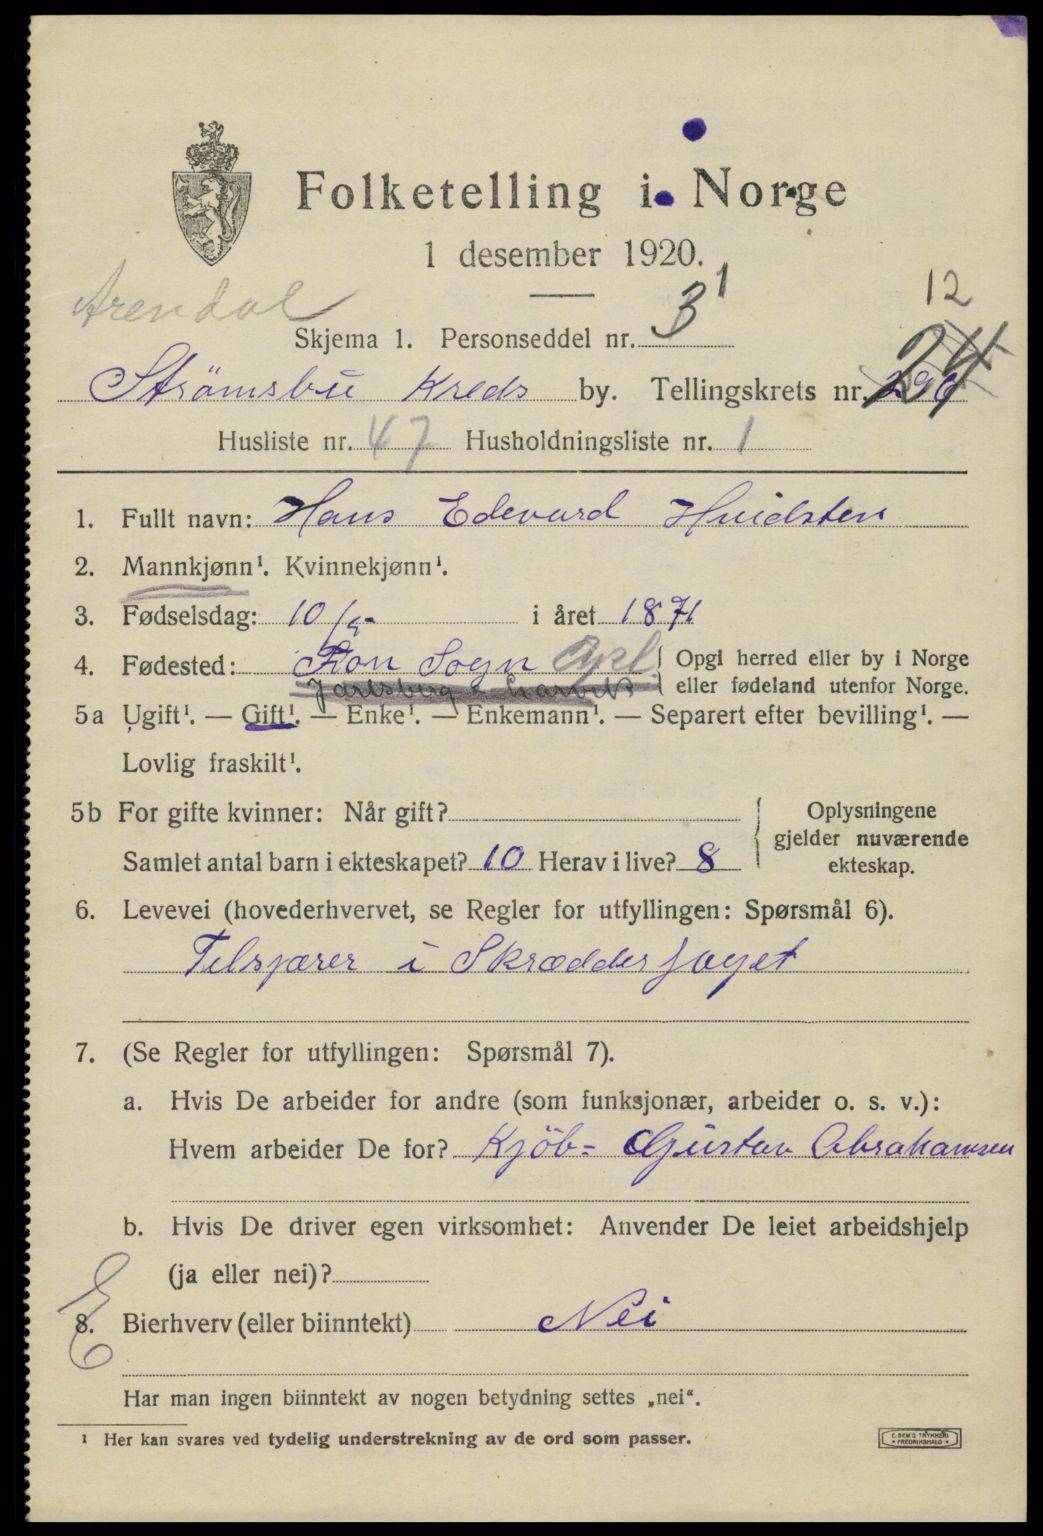 Folketelling i Norge
1 desember 1920.
Arendal
Skjema 1. Personseddel nr. 3 1
12
Strømsbu Kreds by. Tellingskrets nr. 24
Husliste nr. 47 Husholdningsliste nr. 1
1. Fullt navn: Hans Edevard Hvidsten
2. Mannkjønn¹. Kvinnekjønn¹.
3. Fødselsdag: 10/9- i året 1871
4. Fødested: Sogn Opgi herred eller by i Norge
Jarlsberg Larvik eller fødeland utenfor Norge.
5a Ugift¹. — Gift¹. — Enke¹. — Enkemann¹. — Separert efter bevilling¹. —
Lovlig fraskilt¹.
5b For gifte kvinner: Når gift? Oplysningene
gjelder nuværende
Samlet antal barn i ekteskapet? 10 Herav i live? 8 ekteskap.
6. Levevei (hovederhvervet, se Regler for utfyllingen: Spørsmål 6).
Tilsjærer i Skrædderfaget
7. (Se Regler for utfyllingen: Spørsmål 7).
a. Hvis De arbeider for andre (som funksjonær, arbeider o. s. v.):
Hvem arbeider De for? Kjöb= Gustav Abrahamsen
b. Hvis De driver egen virksomhet: Anvender De leiet arbeidshjelp
(ja eller nei)?
8. Bierhverv (eller biinntekt) Nei
Har man ingen biinntekt av nogen betydning settes „nei“.
¹ Her kan svares ved tydelig understrekning av de ord som passer.
E. SEM'S TRYKKERI
FREDRIKSHALD